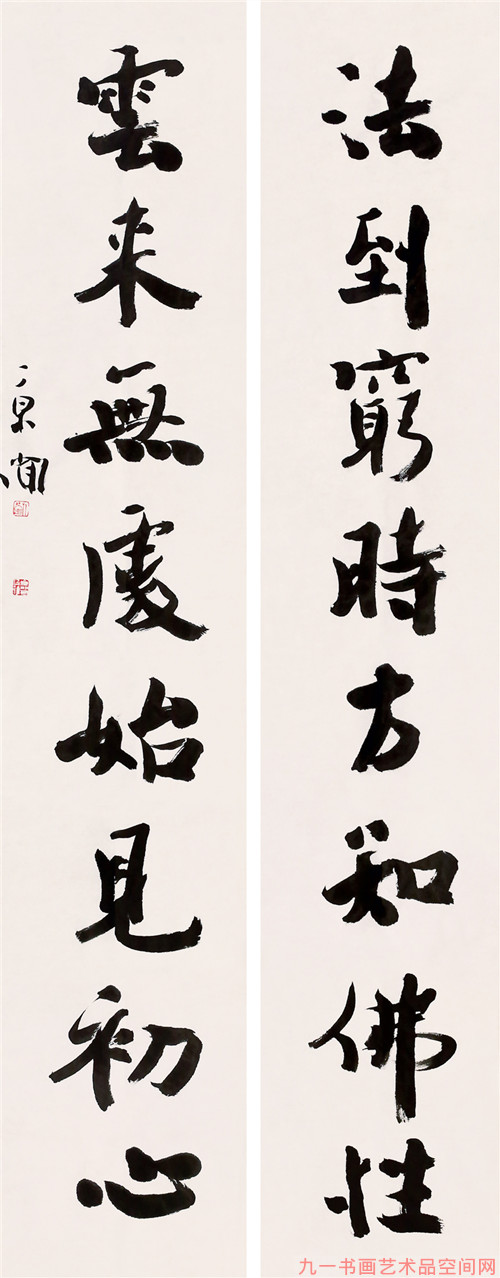 法到窮時方知佛性
雲来無處始見初心
九一书画艺术品空间网